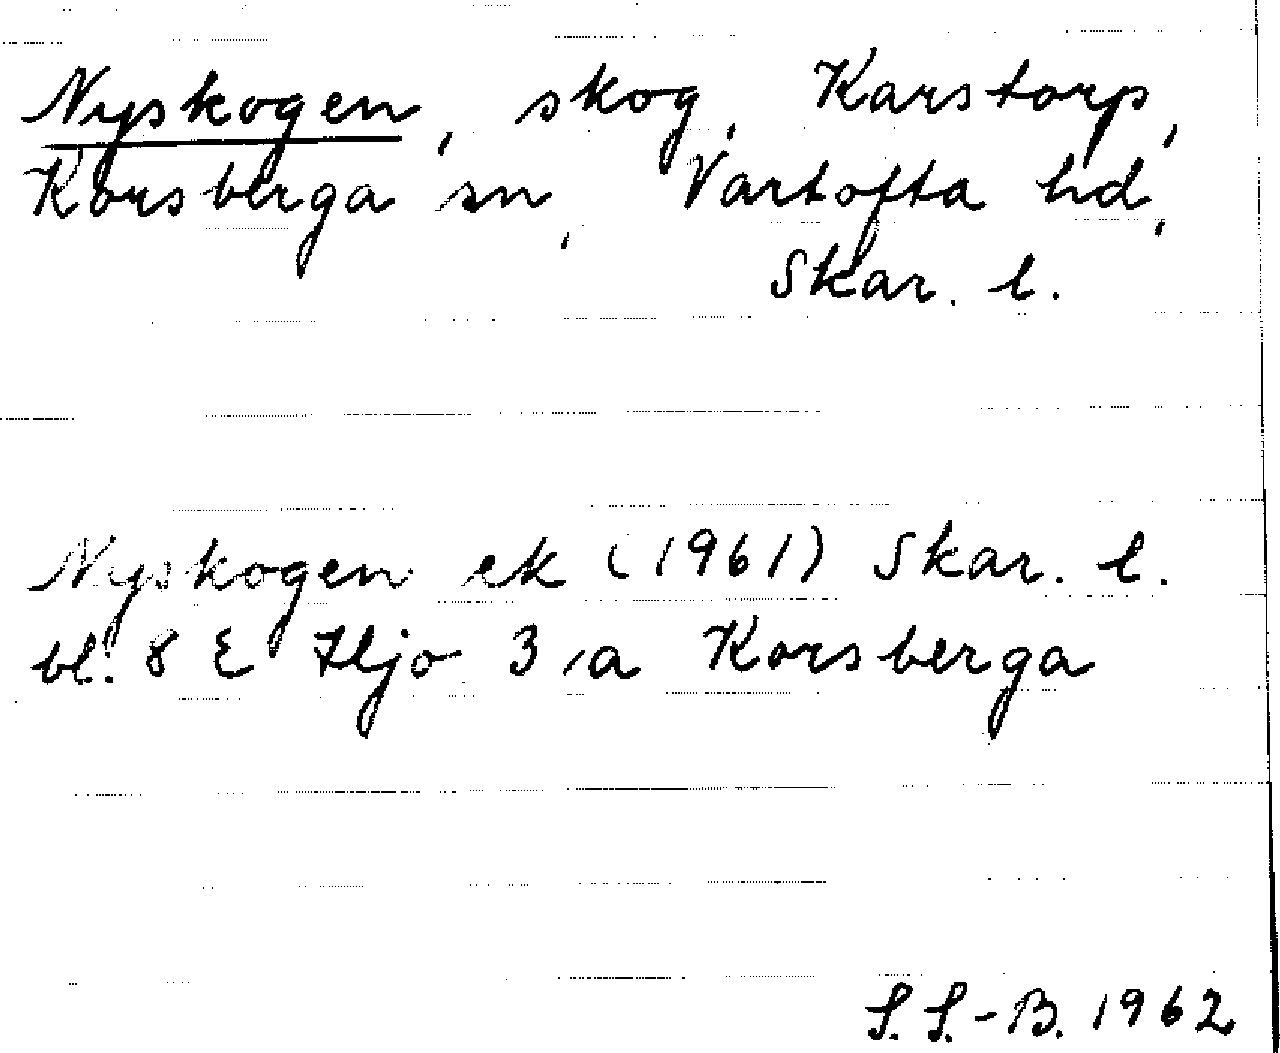 Nyskogen, skog, Karstorp,
Korsberga sn, Vartofta hd,
Skar. l.
Nyskogen ek (1961) Skar. l.
bl. 8 E Hjo 3 a Korsberga
S. S.-B. 1962